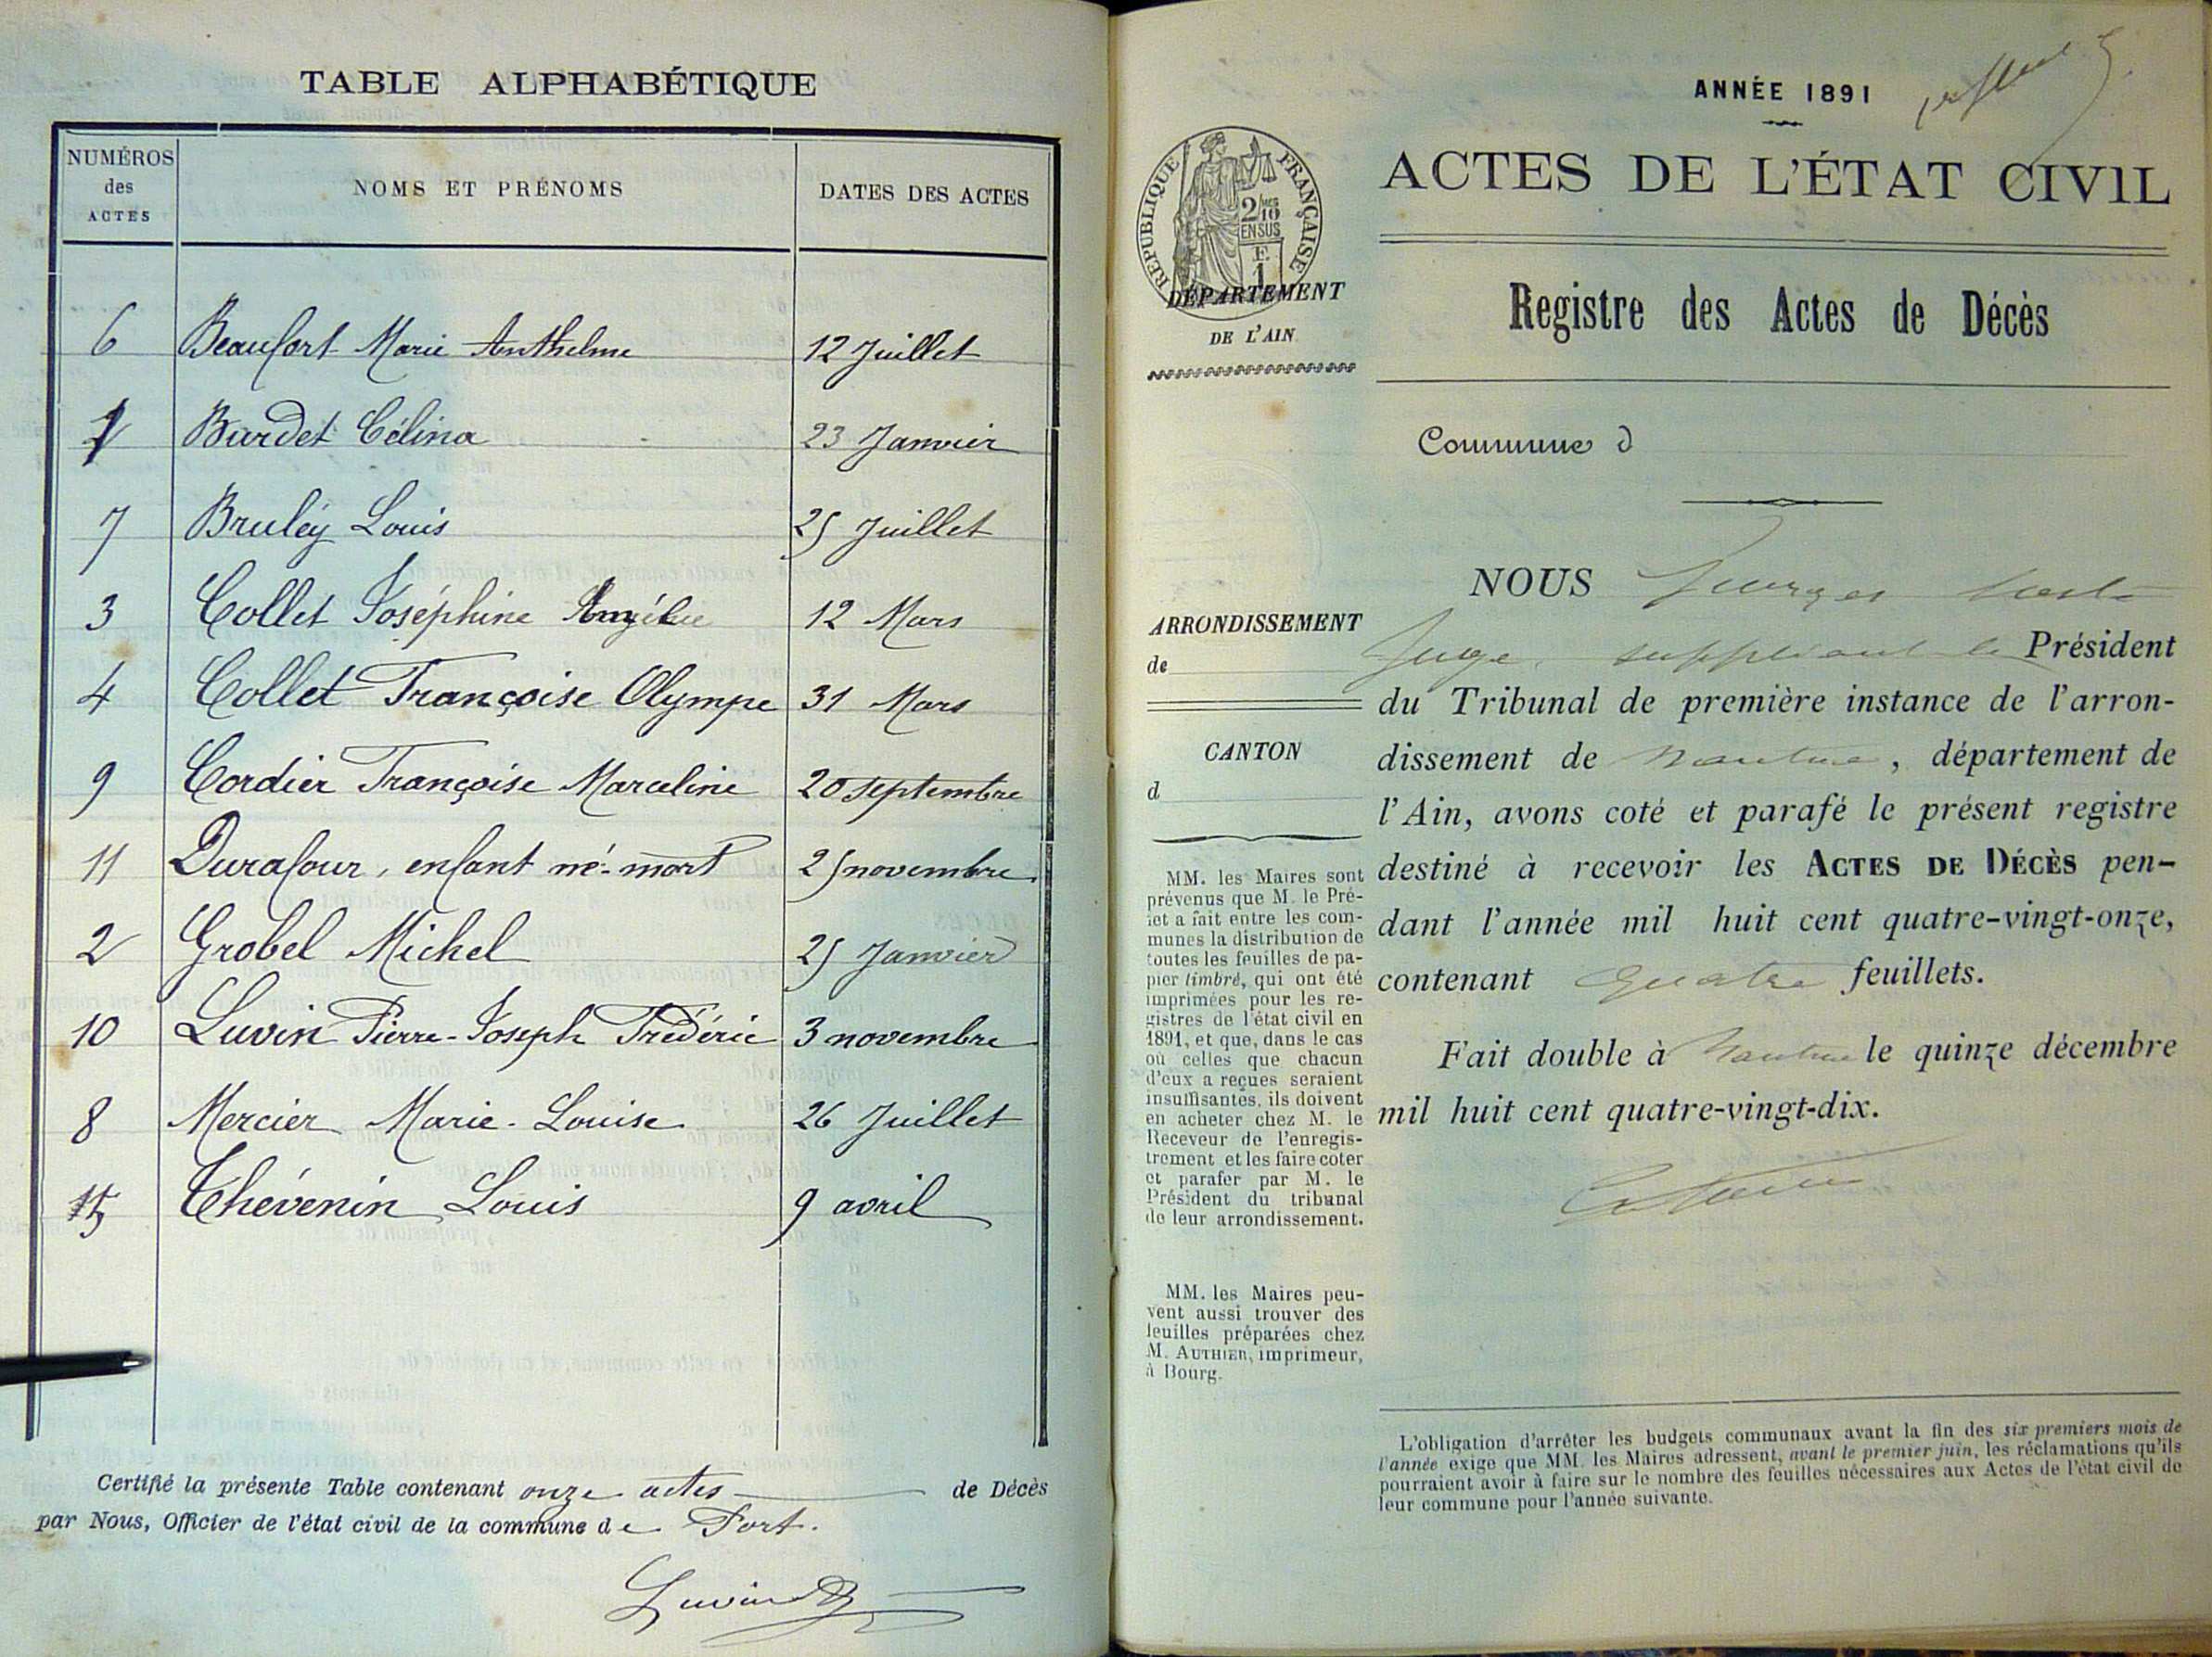 TABLE ALPHABÉTIQUE
NUMÉROS des ACTES NOMS ET PRÉNOMS DATES DES ACTES
6 Beaufort Marie Anthelme 12 Juillet
1 Burdet Célina 23 Janvier
7 Bruley Louis 25 Juillet
3 Collet Joséphine 12 Mars
4 Collet Françoise Olympe 31 Mars
9 Cordier Françoise Marceline 20 septembre
11 Durafour, enfant né-mort 25 novembre
2 Grobel Michel 25 Janvier
10 Luvin Pierre-Joseph Frédéric 3 novembre
8 Mercier Marie-Louise 26 Juillet
5 Thévenin Louis 9 avril
Certifié la présente Table contenant onze actes de Décès
par Nous, Officier de l'état civil de la commune de Port.
Luvin
ANNÉE 1891
ACTES DE L'ÉTAT CIVIL
RÉPUBLIQUE FRANÇAISE
2/10
EN SUS
E
1
DÉPARTEMENT
DE L'AIN
Registre des Actes de Décès
Commune d
ARRONDISSEMENT
de
CANTON
d
MM. les Maires sont
prévenus que M. le Pré-
fet a fait entre les com-
munes la distribution de
toutes les feuilles de pa-
pier timbré, qui ont été
imprimées pour les re-
gistres de l'état civil en
1891, et que, dans le cas
où celles que chacun
d'eux a reçues seraient
insuffisantes, ils doivent
en acheter chez M. le
Receveur de l'enregis-
trement et les faire coter
et parafer par M. le
Président du tribunal
de leur arrondissement.
MM. les Maires peu-
vent aussi trouver des
feuilles préparées chez
M. AUTHIER, imprimeur,
à Bourg.
NOUS Georges
Juge suppléant le Président
du Tribunal de première instance de l'arron-
dissement de Nantua, département de
l'Ain, avons coté et parafé le présent registre
destiné à recevoir les ACTES DE DÉCÈS pen-
dant l'année mil huit cent quatre-vingt-onze,
contenant quatre feuillets.
Fait double à Nantua le quinze décembre
mil huit cent quatre-vingt-dix.
L'obligation d'arrêter les budgets communaux avant la fin des six premiers mois de
l'année exige que MM. les Maires adressent, avant le premier juin, les réclamations qu'ils
pourraient avoir à faire sur le nombre des feuilles nécessaires aux Actes de l'état civil de
leur commune pour l'année suivante.